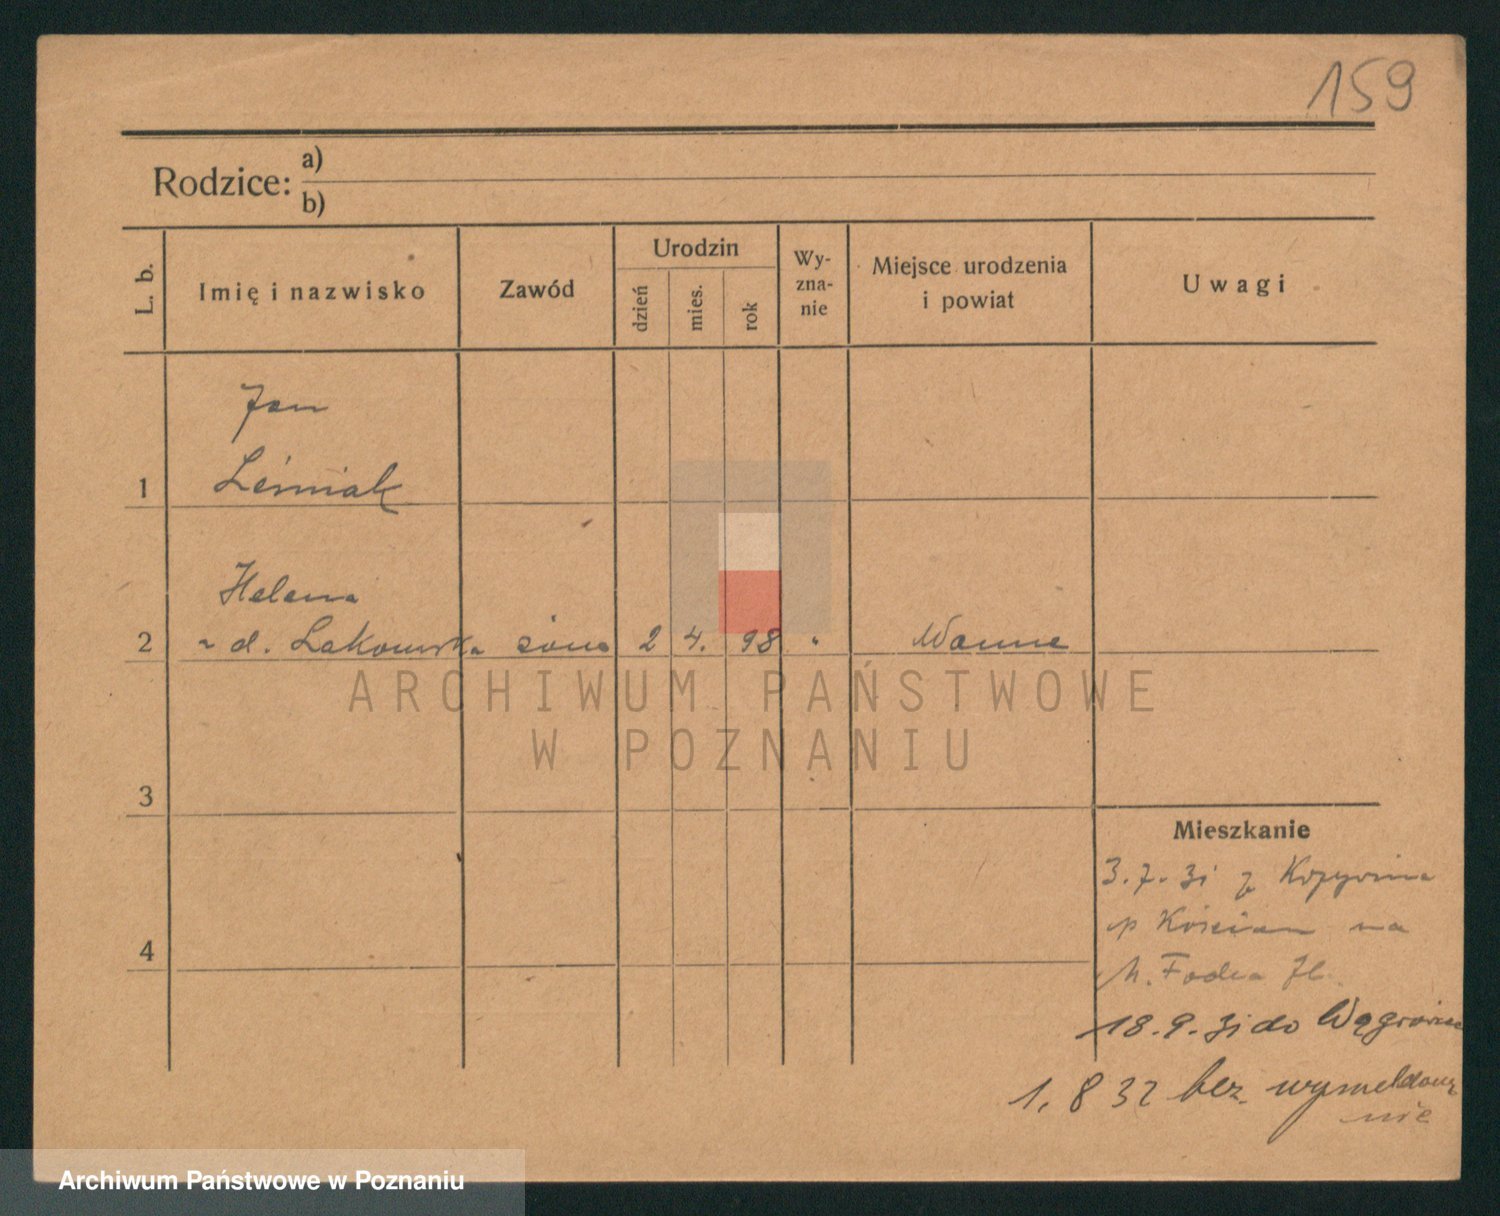 159
Rodzice: a)
b)
L. b.
Imię i nazwisko
Zawód
Urodzin
dzień
mies.
rok
Wy-
zna-
nie
Miejsce urodzenia
i powiat
Uwagi
Jan
1 Leśniak
Helena
2 d. Łakomska żona 2 4. 98 " Wanne
3
4
Mieszkanie
3.7.31 z
p Kościan na
18.9.31 do
1. 8 32 bez wymeldowa
nie
ARCHIWUM PAŃSTWOWE
W POZNANIU
Archiwum Państwowe w Poznaniu